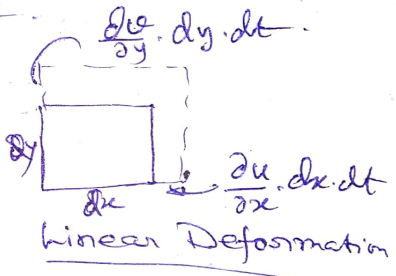 ∂v/∂y . dy . dt .
dy
∂u/∂x . dx . dt
dx
Linear Deformation